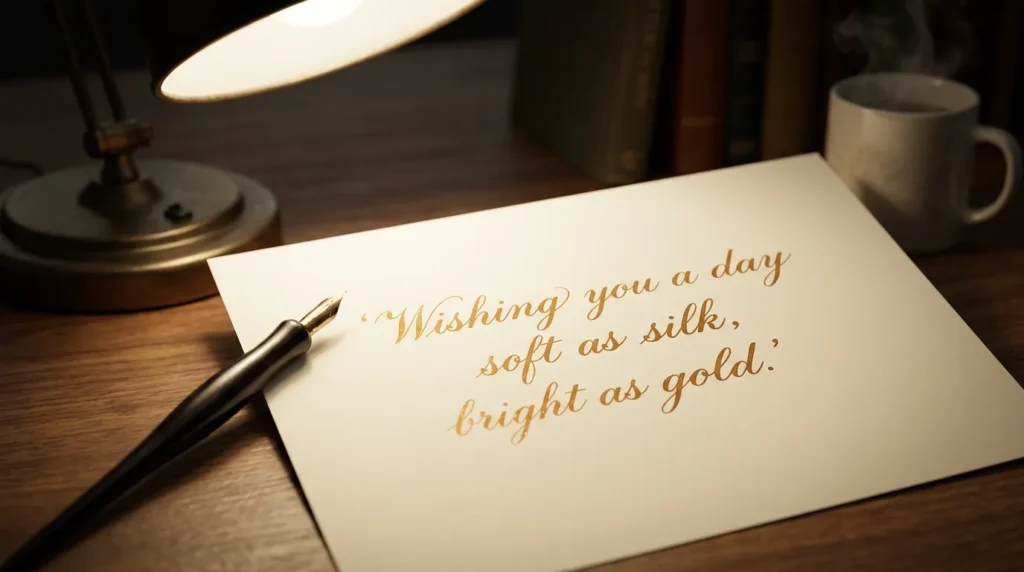 ‘Wishing you a day
soft as silk,
bright as gold.’